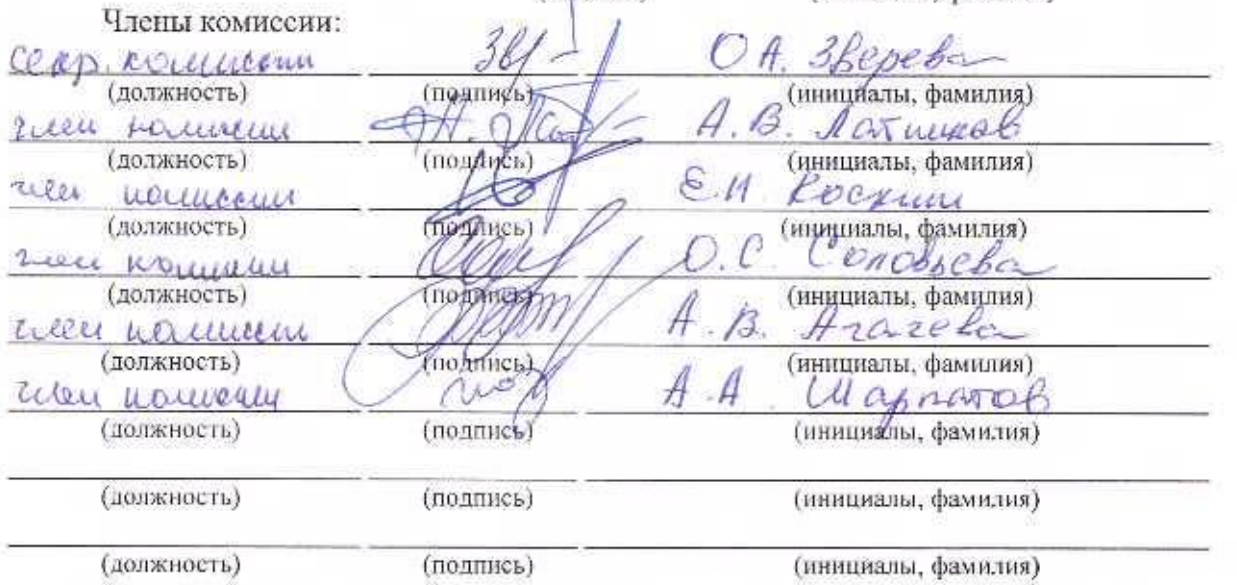 Члены комиссии:
секр. комиссии О.А. Зверева
(должность) (подпись) (инициалы, фамилия)
член комиссии А.В. Латышов
(должность) (подпись) (инициалы, фамилия)
член комиссии Е.И. Коскин
(должность) (подпись) (инициалы, фамилия)
член комиссии О.С. Соловьева
(должность) (подпись) (инициалы, фамилия)
член комиссии А.В. Агачева
(должность) (подпись) (инициалы, фамилия)
член комиссии А.А. Шарпатов
(должность) (подпись) (инициалы, фамилия)
(должность) (подпись) (инициалы, фамилия)
(должность) (подпись) (инициалы, фамилия)